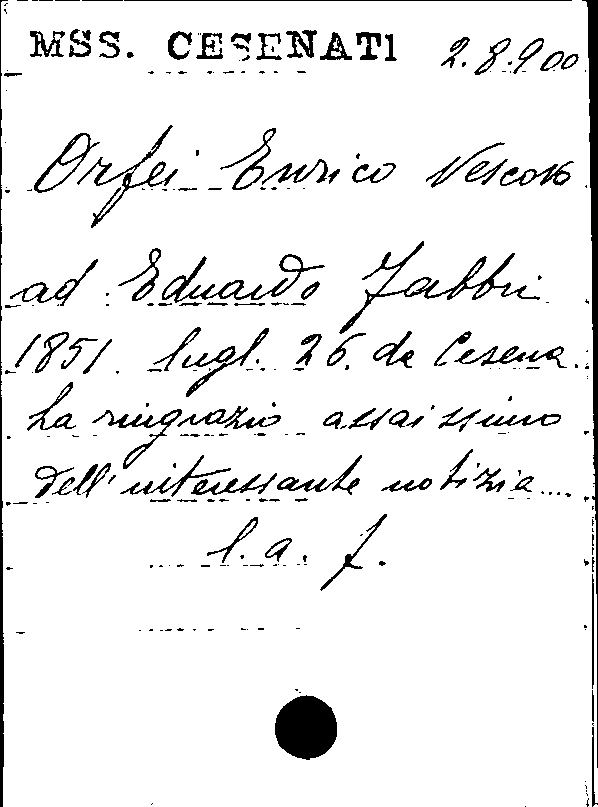 MSS. CESENATI 2.8.900
Orfei Enrico Vescovo
ad Eduardo Fabbri
1851 lugl. 26. da Cesena.
La ringrazio assaissimo
dell'interessante notizia....
l. a. f.